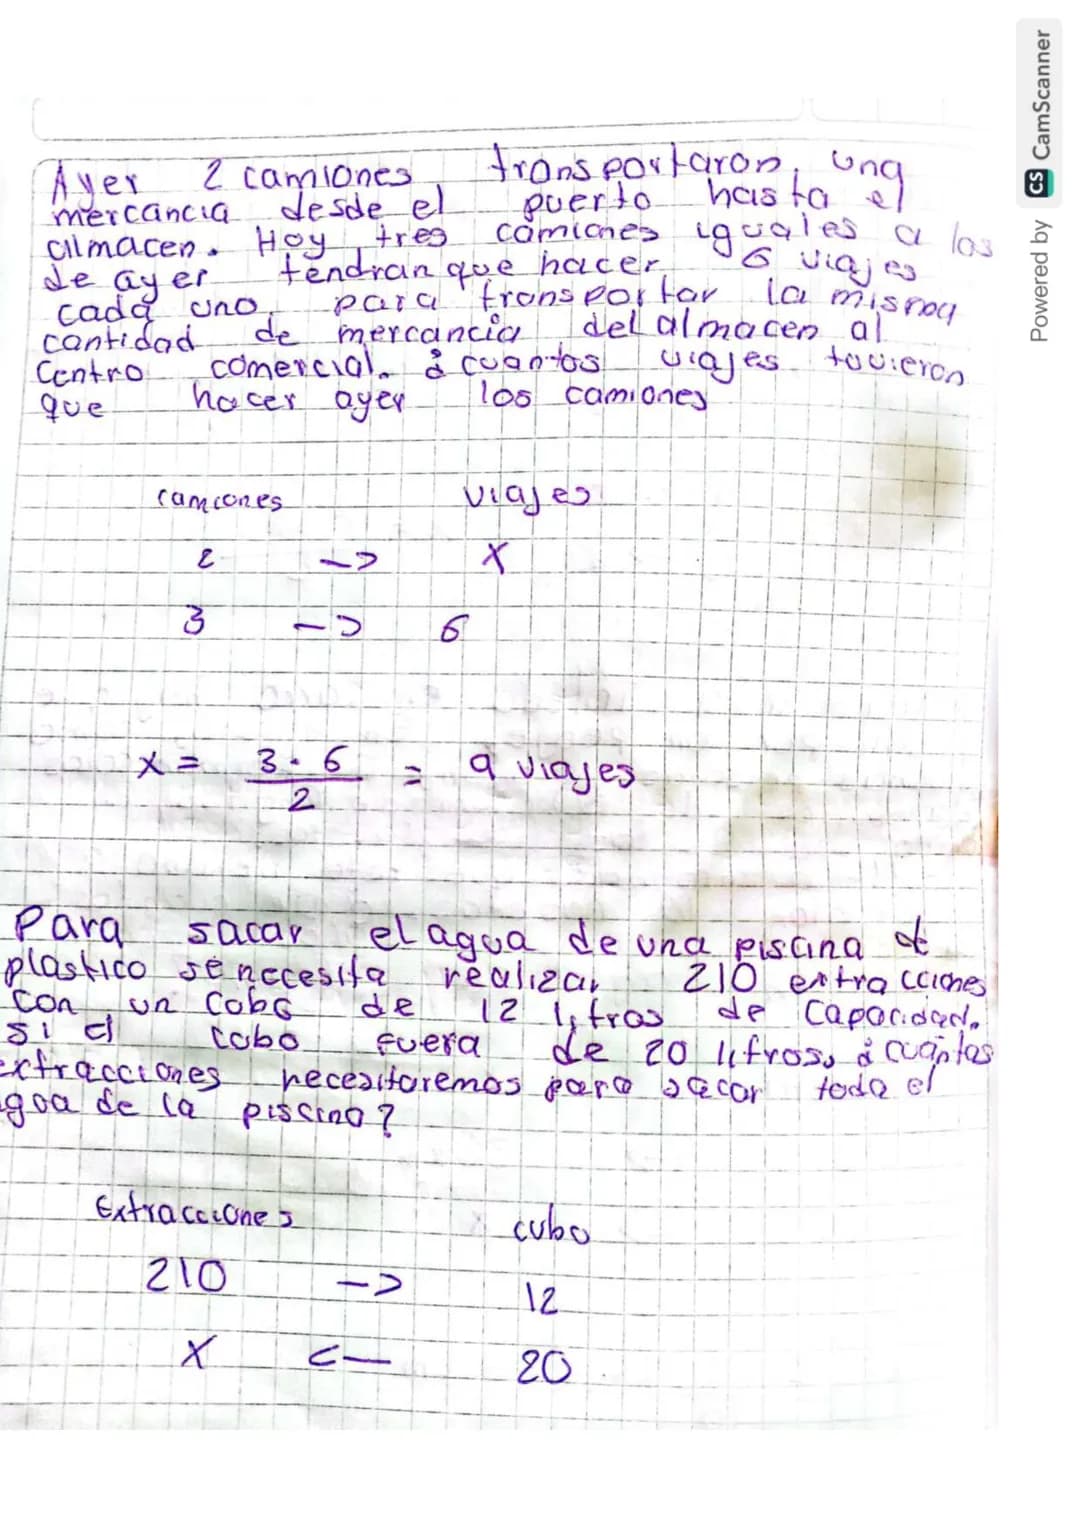 Ayer 2 camiones transportaron una
mercancia desde el puerto hasta el
almacen. Hoy tres camiones iguales a los
de ayer tendran que hacer 6 viajes
cada uno para transportar la misma
cantidad de mercancia del almacen al
Centro comercial. ¿cuantos viajes tuvieron
que hacer ayer los camiones
camiones viajes
2 -> X
3 -> 6
x = 3 · 6 / 2 = 9 viajes
Para sacar el agua de una piscina de
plastico se necesita realizar 210 extracciones
con un cobo de 12 litros de capacidad.
si el cobo fuera de 20 litros, ¿cuantas
extracciones necesitaremos para sacar toda el
agua de la piscina?
Extracciones cubo
210 -> 12
X <- 20
Powered by CS CamScanner